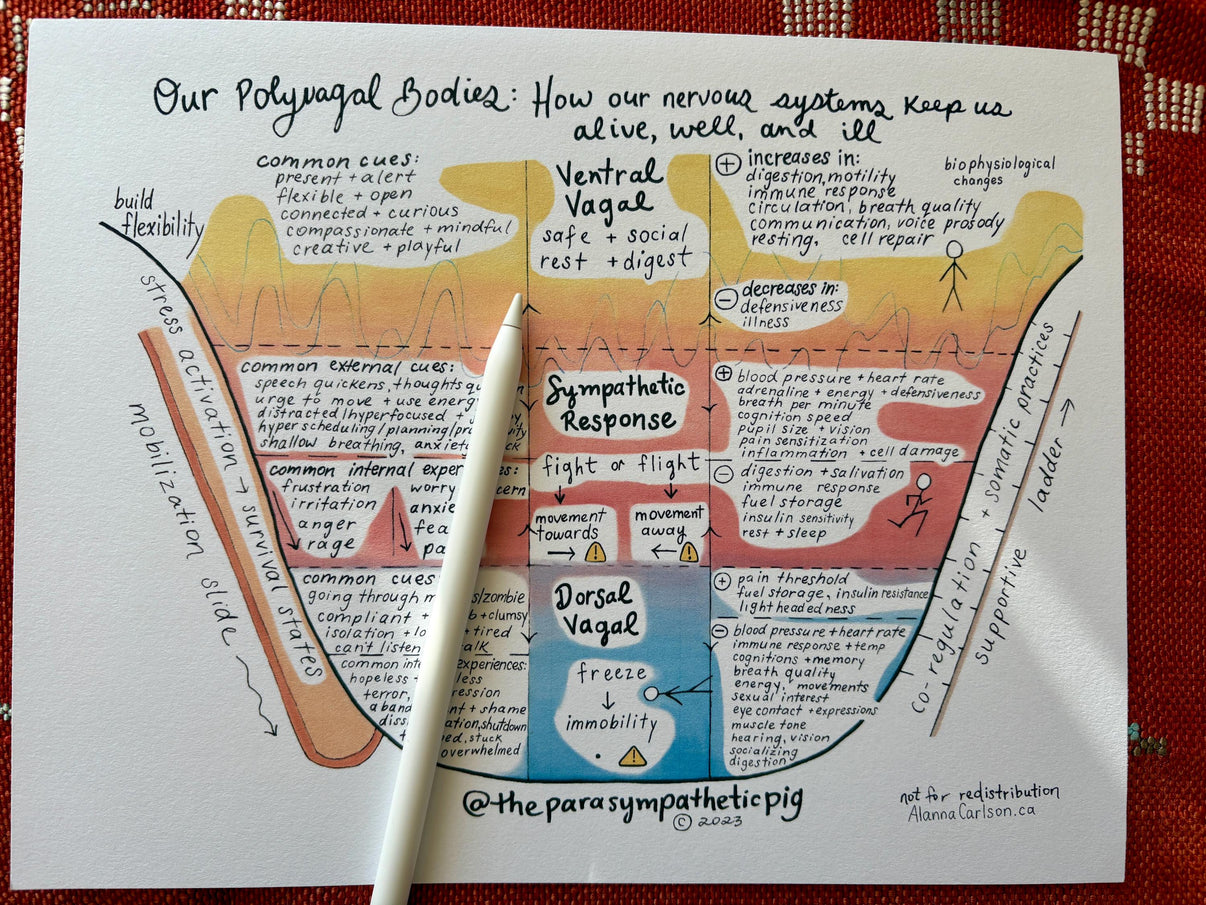 Our Polyvagal Bodies: How our nervous systems keep us
alive, well, and ill
build
flexibility
common cues:
present + alert
flexible + open
connected + curious
compassionate + mindful
creative + playful
Ventral
Vagal
safe + social
rest + digest
+ increases in:
digestion, motility
immune response
circulation, breath quality
communication, voice prosody
resting, cell repair
biophysiological
changes
- decreases in:
defensiveness
illness
stress activation → survival states
mobilization slide
common external cues:
speech quickens, thoughts
urge to move + use energy
distracted/hyperfocused +
hyper scheduling/planning/
shallow breathing,
common internal
frustration
irritation
anger
rage
worry
Sympathetic
Response
fight or flight
movement
towards
→ ⚠
movement
away
← ⚠
+ blood pressure + heart rate
adrenaline + energy + defensiveness
breath per minute
cognition speed
pupil size + vision
pain sensitization
inflammation + cell damage
- digestion + salivation
immune response
fuel storage
insulin sensitivity
rest + sleep
common cues
going through /zombie
compliant + + clumsy
isolation + + tired
can't listen
common experiences:
hopeless +
terror,
+ shame
shutdown
stuck
overwhelmed
Dorsal
Vagal
freeze
↓
immobility
⚠
+ pain threshold
fuel storage, insulin resistance
lightheadedness
- blood pressure + heart rate
immune response + temp
cognitions + memory
breath quality
energy, movements
sexual interest
eye contact + expressions
muscle tone
hearing, vision
socializing
digestion
co-regulation + somatic practices
supportive ladder →
@theparasympatheticpig
© 2023
not for redistribution
AlannaCarlson.ca